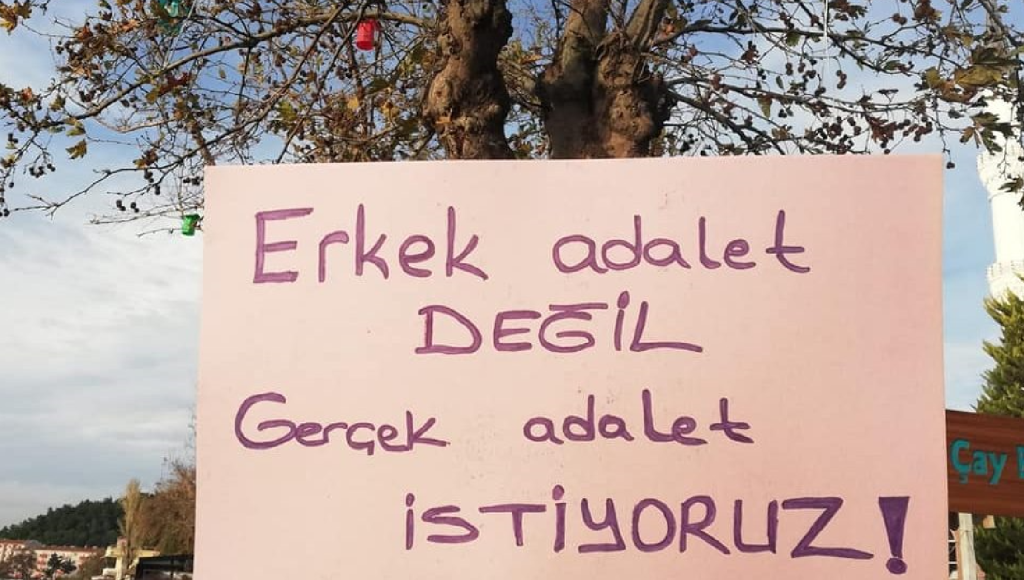 Erkek adalet
DEĞİL
Gerçek adalet
İSTİYORUZ!
Çay